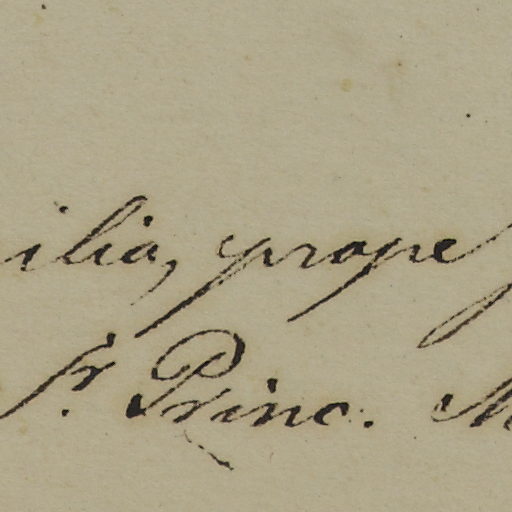 ilia, prope
fr. Princ. M